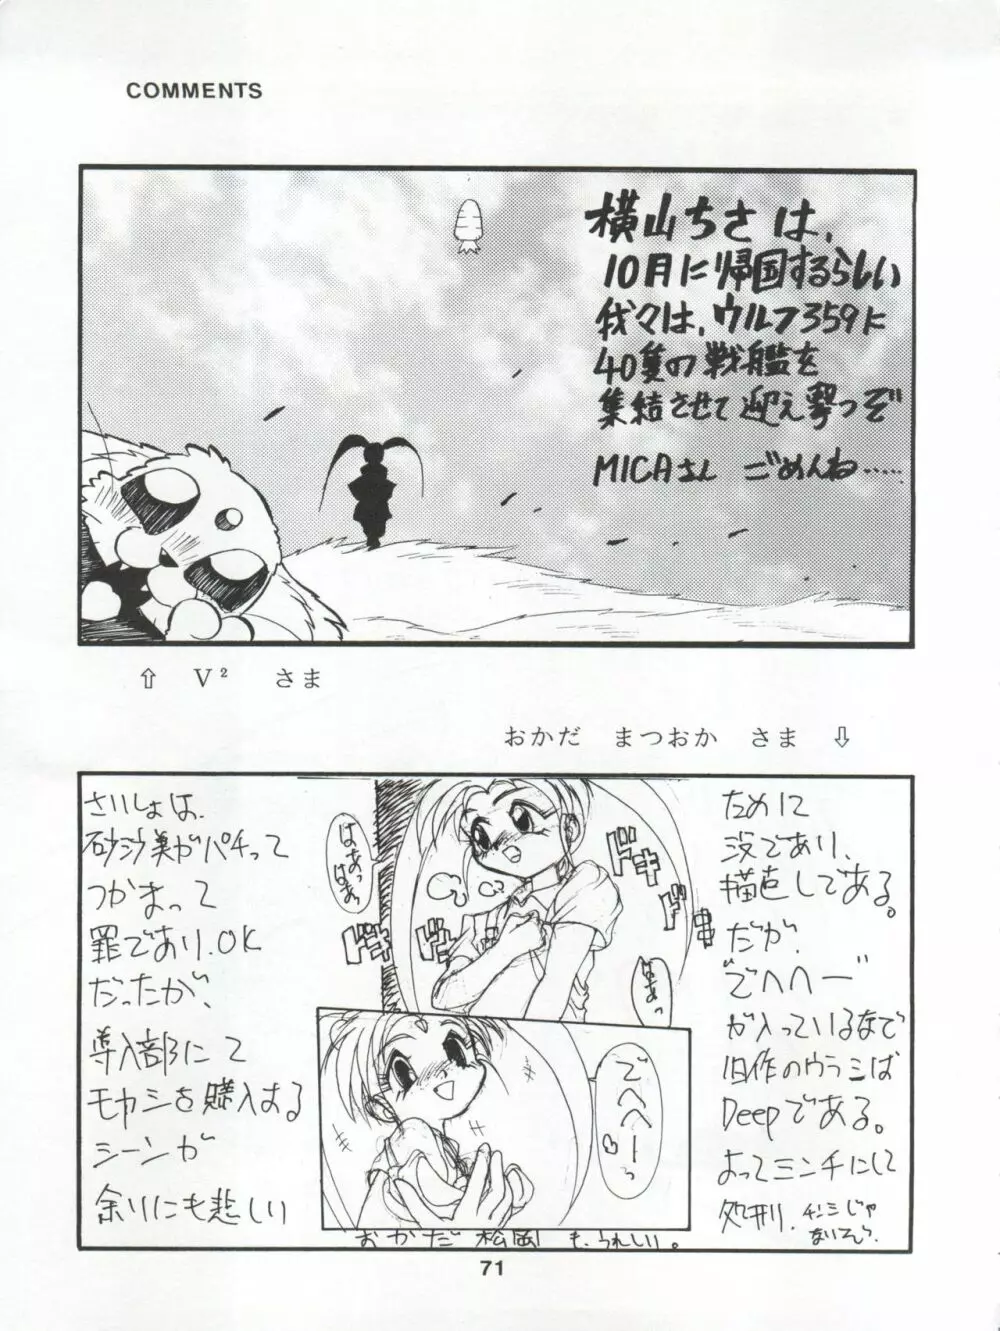 COMMENTS
横山ちさは、
10月に帰国するらしい
我々は、ウルフ359に
40隻の戦艦を
集結させて迎え撃つぞ
MICAさん ごめんね……
⇧ V² さま
おかだ まつおか さま ⇩
さいしょは、
砂沙美がパチって
つかまって
罪であり、OK
だったが、
導入部にて
モカシを購入する
シーンが
余りにも悲しい
ためにて
没であり、
描直してある。
だが、
でへへー
が入っているなど
旧作のウラミは
Deepである。
よってミンチにして
処刑り、
ないぞう、
はあっ
はあ
ドキ
ドキ
ドキ
ドキ
はぁっ
でへへーっ♡
おかだ 松岡 も、うれしい。
71